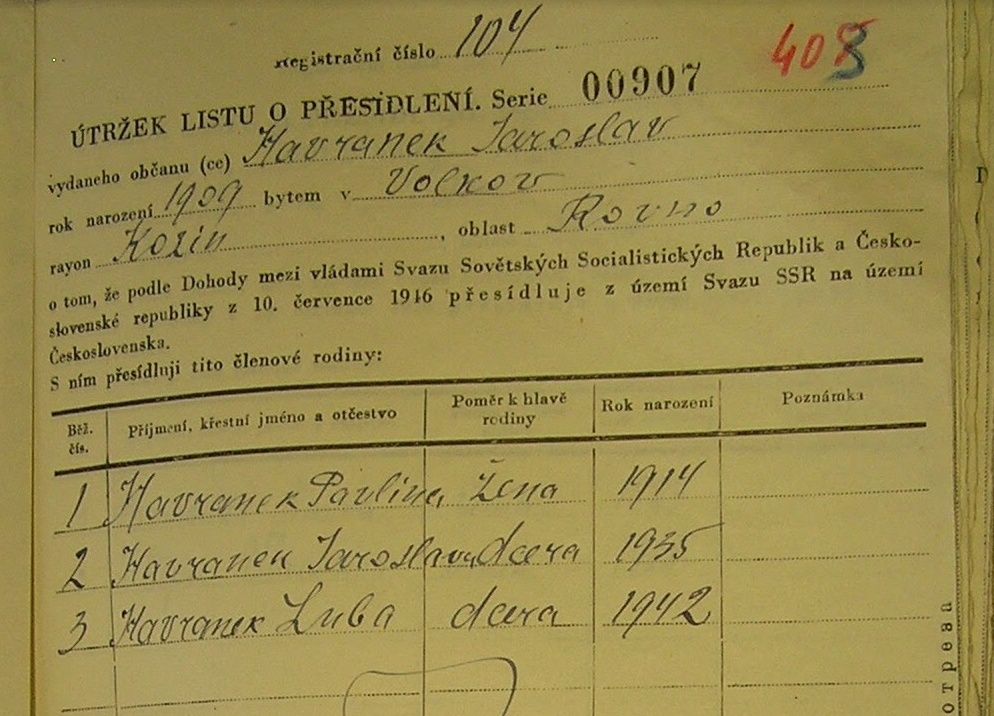 Registrační číslo 104
408
ÚTRŽEK LISTU O PŘESIDLENÍ. Serie 00907
vydaneho občanu (ce) Havranek Jaroslav
rok narození 1909 bytem v Volkov
rayon Kozin, oblast Rovno
o tom, že podle Dohody mezi vládami Svazu Sovětských Socialistických Republik a Česko-
slovenské republiky z 10. července 1946 přesídluje z území Svazu SSR na území
Československa.
S ním přesídluji tito členové rodiny:
Běž. čís. Příjmení, křestní jméno a otčestvo Poměr k hlavě rodiny Rok narození Poznámka
1 Havranek Pavlina žena 1914
2 Havranek Jaroslava dcera 1935
3 Havranek Luba dcera 1942
отреза